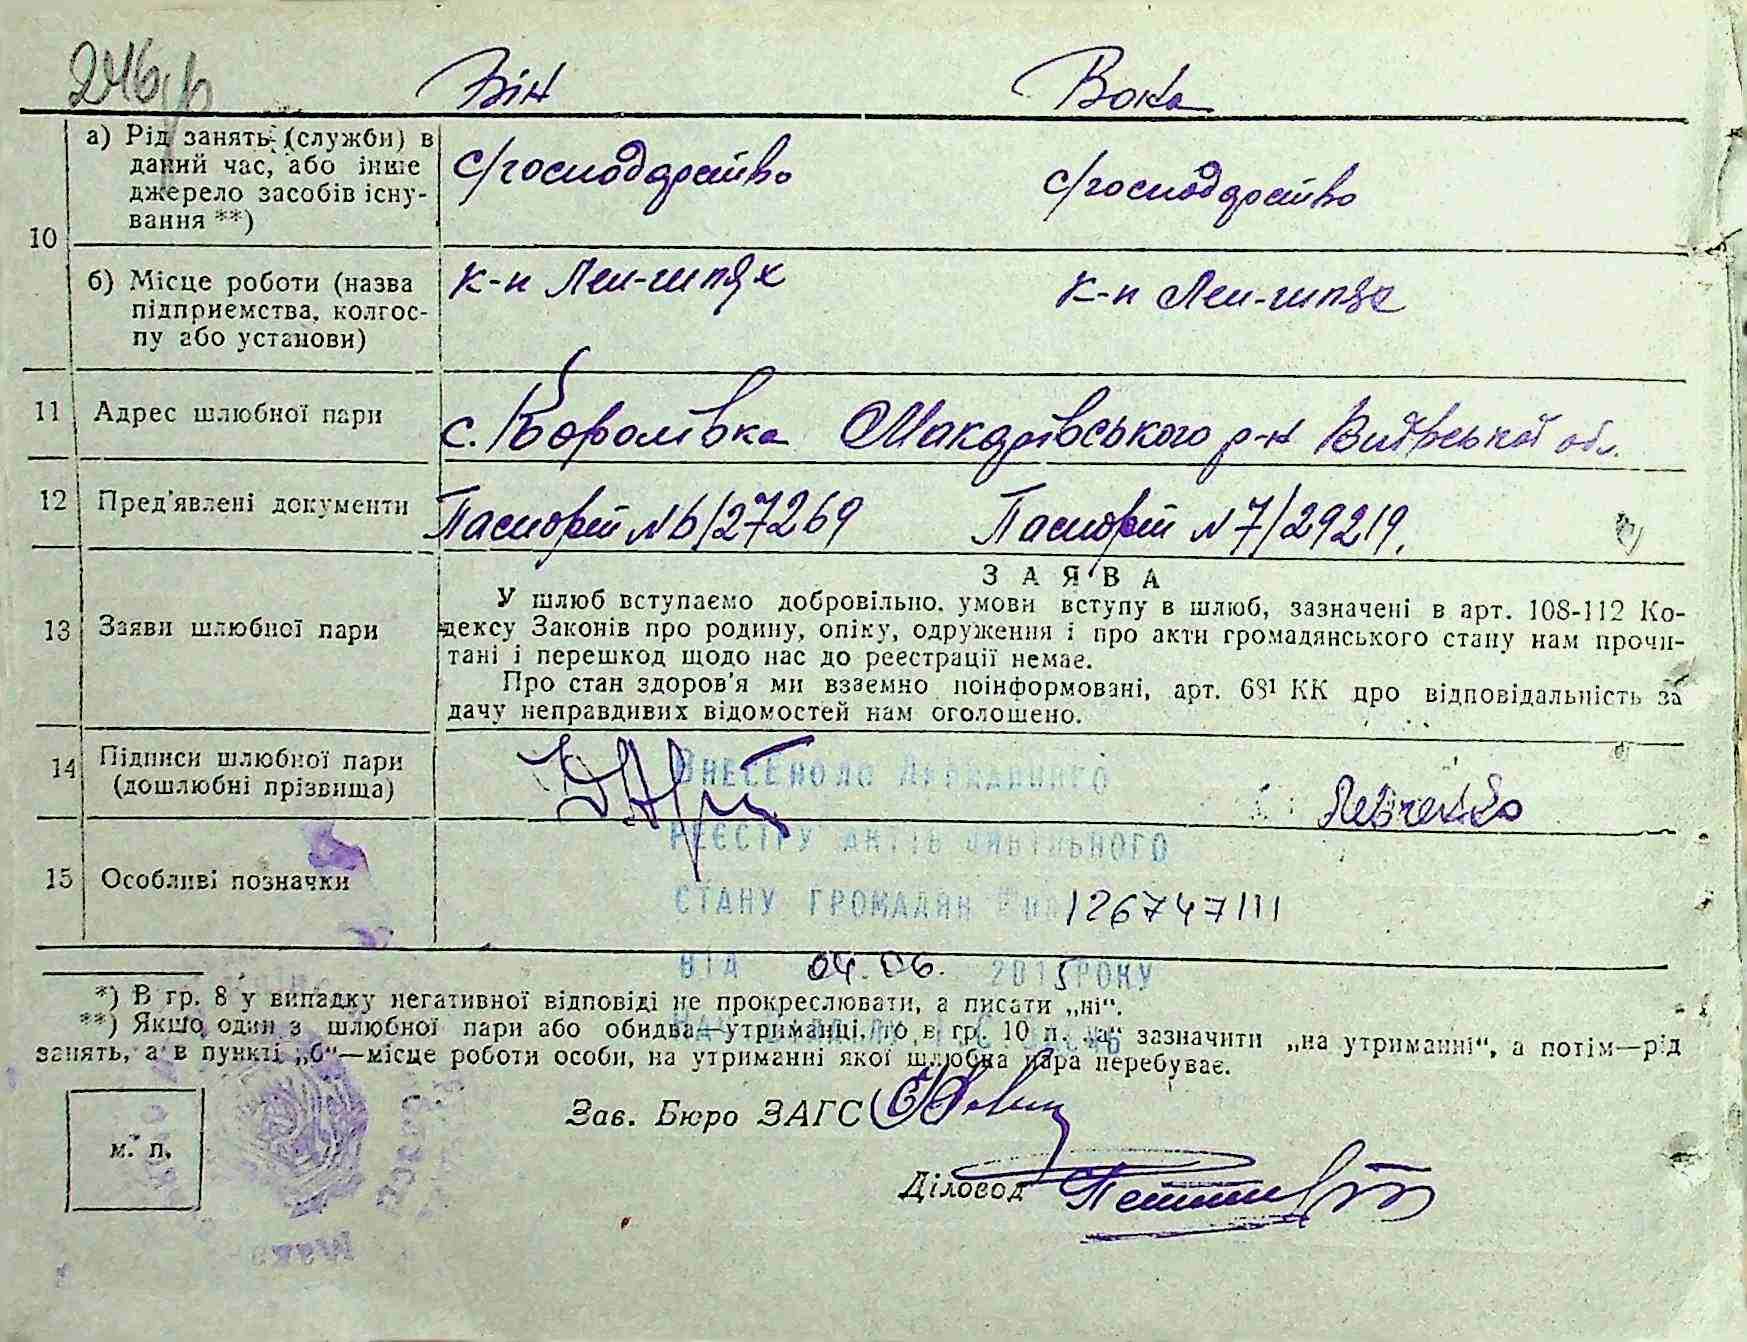 246
Він Вона
а) Рід занять (служби) в
даний час, або інше
джерело засобів існу-
вання **)
с/господарство с/господарство
10
б) Місце роботи (назва
підприємства, колгос-
пу або установи)
к-п Лен-шлях к-п Лен-шлях
11 Адрес шлюбної пари
с. Королівка Макарівського р-н обл.
12 Пред'явлені документи
Паспорт №6/27269 Паспорт №7/29219.
ЗАЯВА
13 Заяви шлюбної пари
У шлюб вступаємо добровільно, умови вступу в шлюб, зазначені в арт. 108-112 Ко-
дексу Законів про родину, опіку, одруження і про акти громадянського стану нам прочи-
тані і перешкод щодо нас до реєстрації немає.
Про стан здоров'я ми взаємно поінформовані, арт. 68¹ КК про відповідальність за
дачу неправдивих відомостей нам оголошено.
14 Підписи шлюбної пари
(дошлюбні прізвища)
Внесено до Державного
реєстру актів цивільного
15 Особливі позначки
стану громадян 126747111
від 04.06. 2015 року
*) В гр. 8 у випадку негативної відповіді не прокреслювати, а писати „ні“.
**) Якщо один з шлюбної пари або обидва—утриманці, то в гр. 10 п. „а“ зазначити „на утриманні“, а потім—рід
занять, а в пункті „б“—місце роботи особи, на утриманні якої шлюбна пара перебуває.
Зав. Бюро ЗАГС
м. п.
Діловод